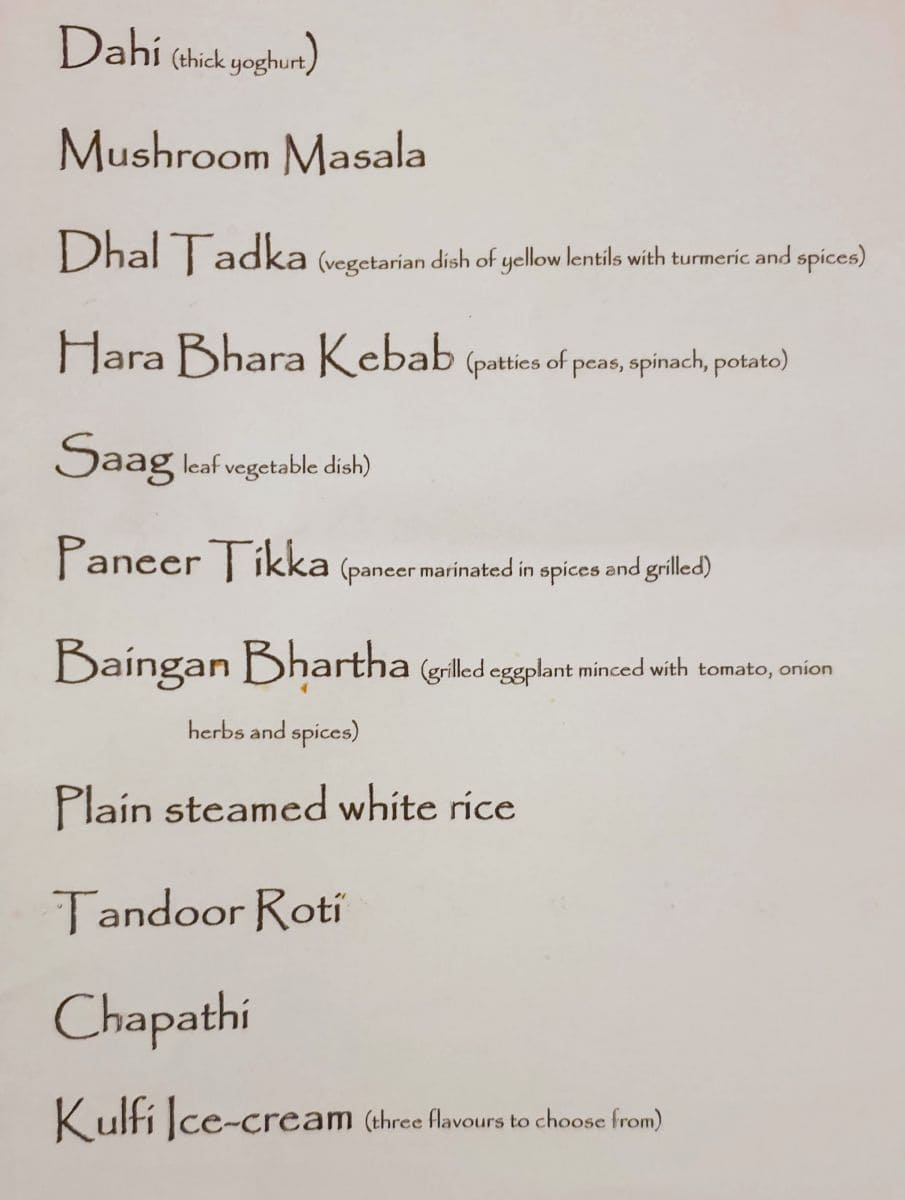 Dahi (thick yoghurt)
Mushroom Masala
Dhal Tadka (vegetarian dish of yellow lentils with turmeric and spices)
Hara Bhara Kebab (patties of peas, spinach, potato)
Saag leaf vegetable dish)
Paneer Tikka (paneer marinated in spices and grilled)
Baingan Bhartha (grilled eggplant minced with tomato, onion
herbs and spices)
Plain steamed white rice
Tandoor Roti
Chapathi
Kulfi Ice-cream (three flavours to choose from)